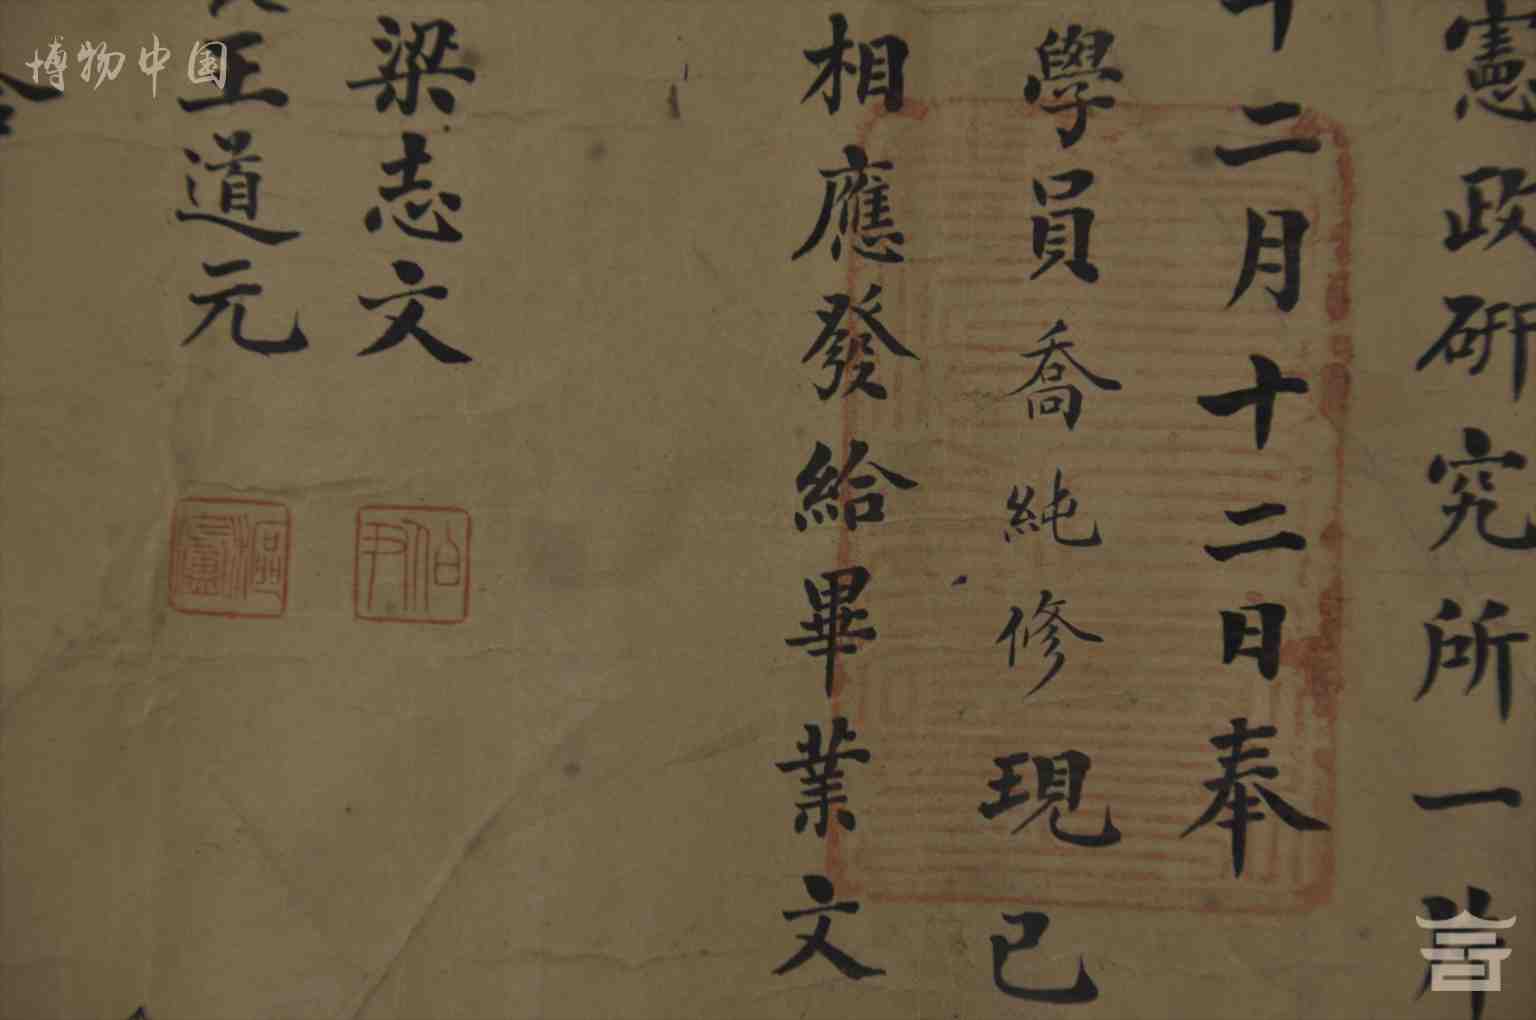 憲政研究所一
十二月十二日奉
學員喬純修現已
相應發給畢業文
梁志文
伯尹
王道元
博物中国